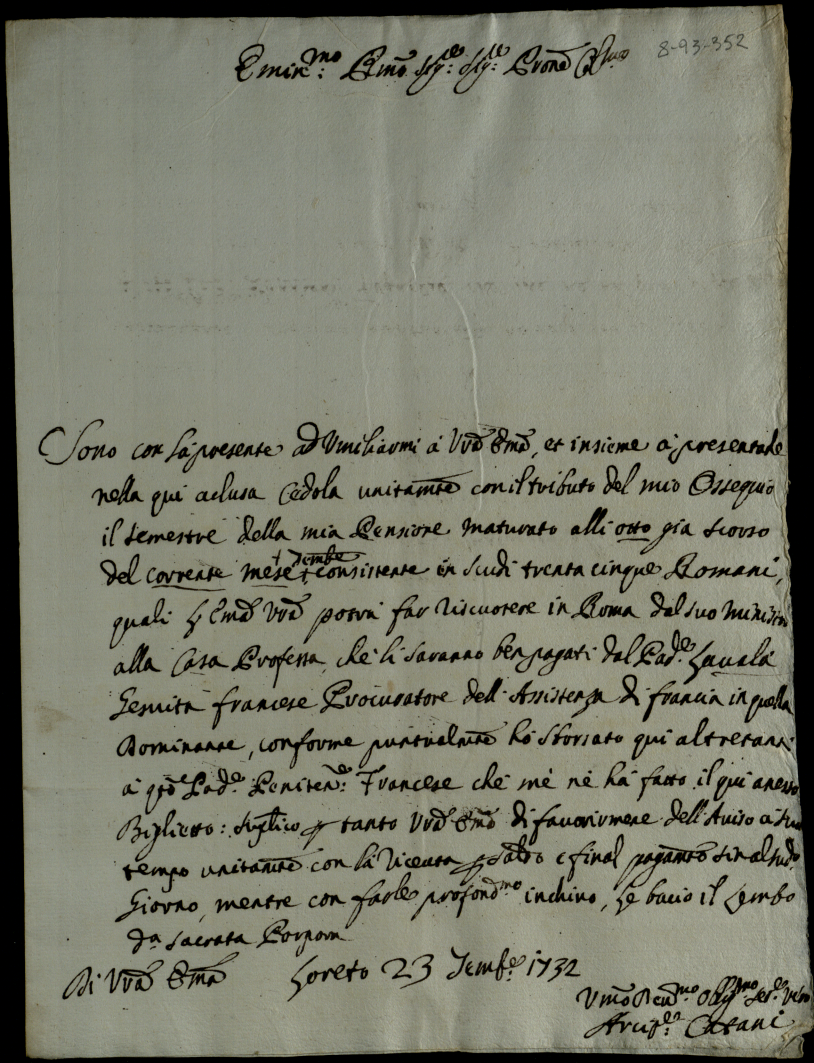 8-93-352
Emin:mo Rmo Sig:re Sig:re Prone Colmo
Sono con la presente ad Umiliarmi à Vrã Emã, et insieme à presentarle
nella qui aclusa Cedola unitamte con il tributo del mio Ossequio
il semestre della mia Pensione maturato alli otto già scorso
+ Xembre
del corrente mese + consistente in Scudi trenta cinque Romani,
quali L'Emã Vrã potrà far riscuotere in Roma dal suo Ministro
alla Casa Professa, che li saranno ben pagati dal Pad.e
Gesuita francese Procuratore dell'Assistenza di francia in quella
Dominante, conforme puntualmte hò sborsato qui altretanti
à qto Pad.e Peniten.e Francese che mè nè hà fatto il qui anesso
Biglietto: Suplico p tanto Vrã Emã di favorirmene dell'Aviso à suo
tempo unitamte con la riceuta p saldo e final pagamto sin al sud.o
Giorno, mentre con farle profond.mo inchino, le bacio il Lembo
d.a Sacrata Porpora
Di Vrã Emã Loreto 23 1732
Umo Obl.mo Ser.e
Arcip.te Catani